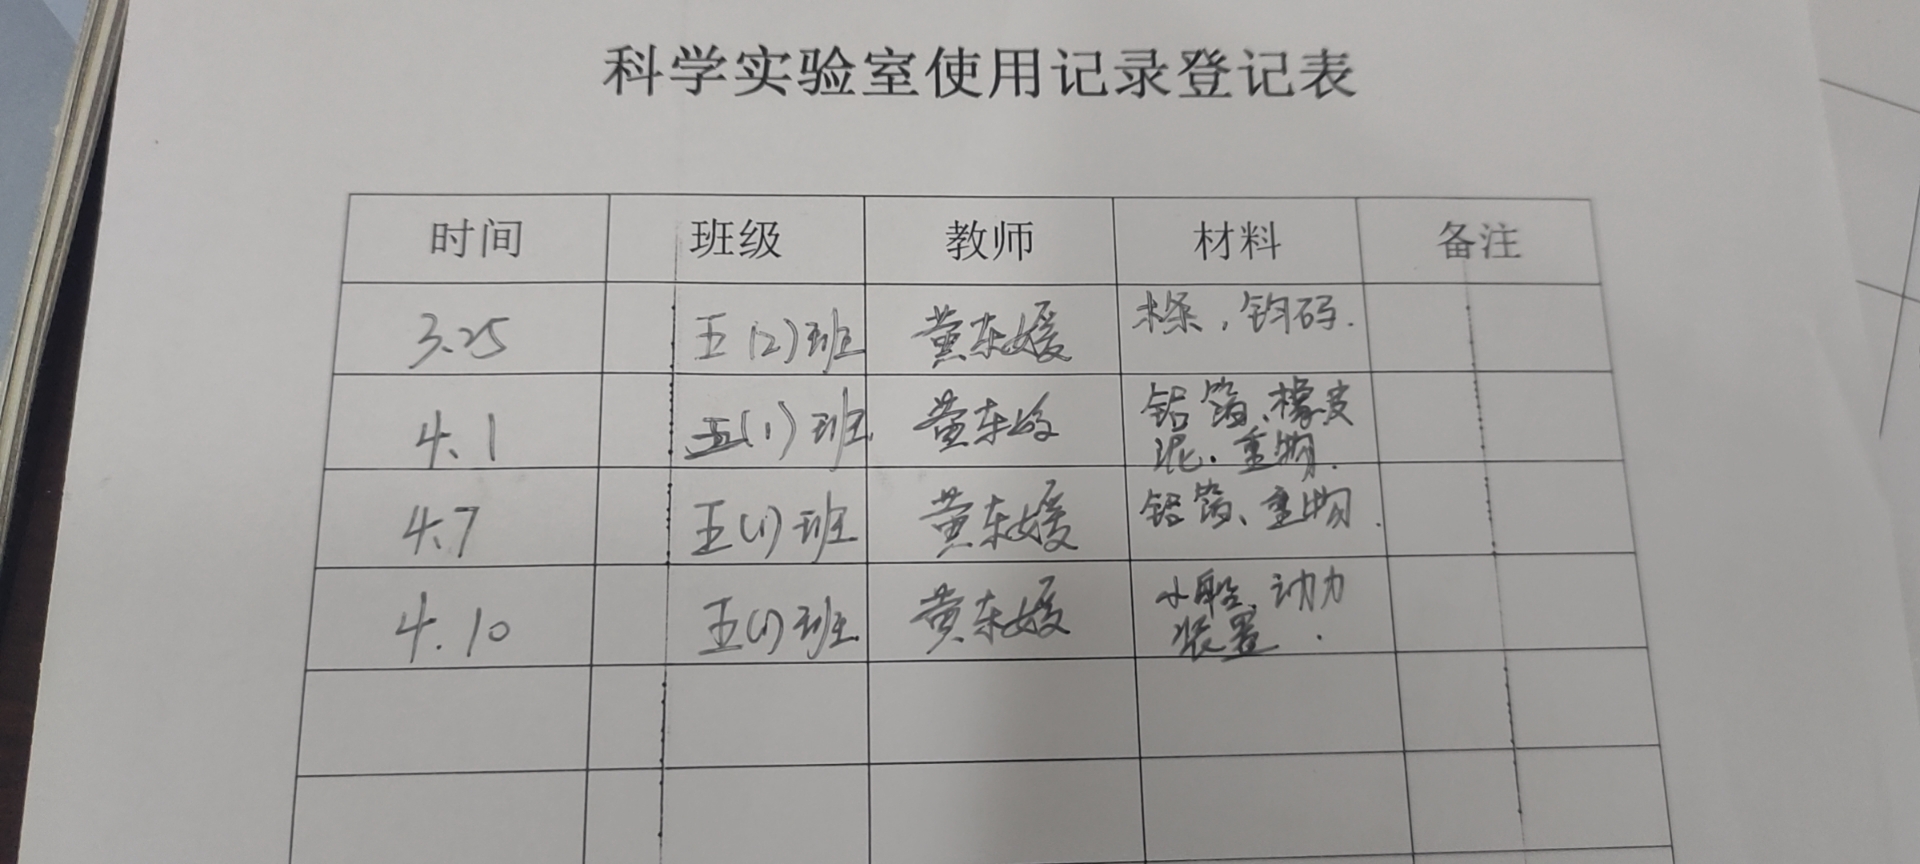 科学实验室使用记录登记表
时间 班级 教师 材料 备注
3.25 五(2)班 黄东媛 木条,钩码.
4.1 五(1)班 黄东媛 铝箔、橡皮
泥.重物.
4.7 五(1)班 黄东媛 铝箔、重物.
4.10 五(1)班 黄东媛 小船、动力
装置.